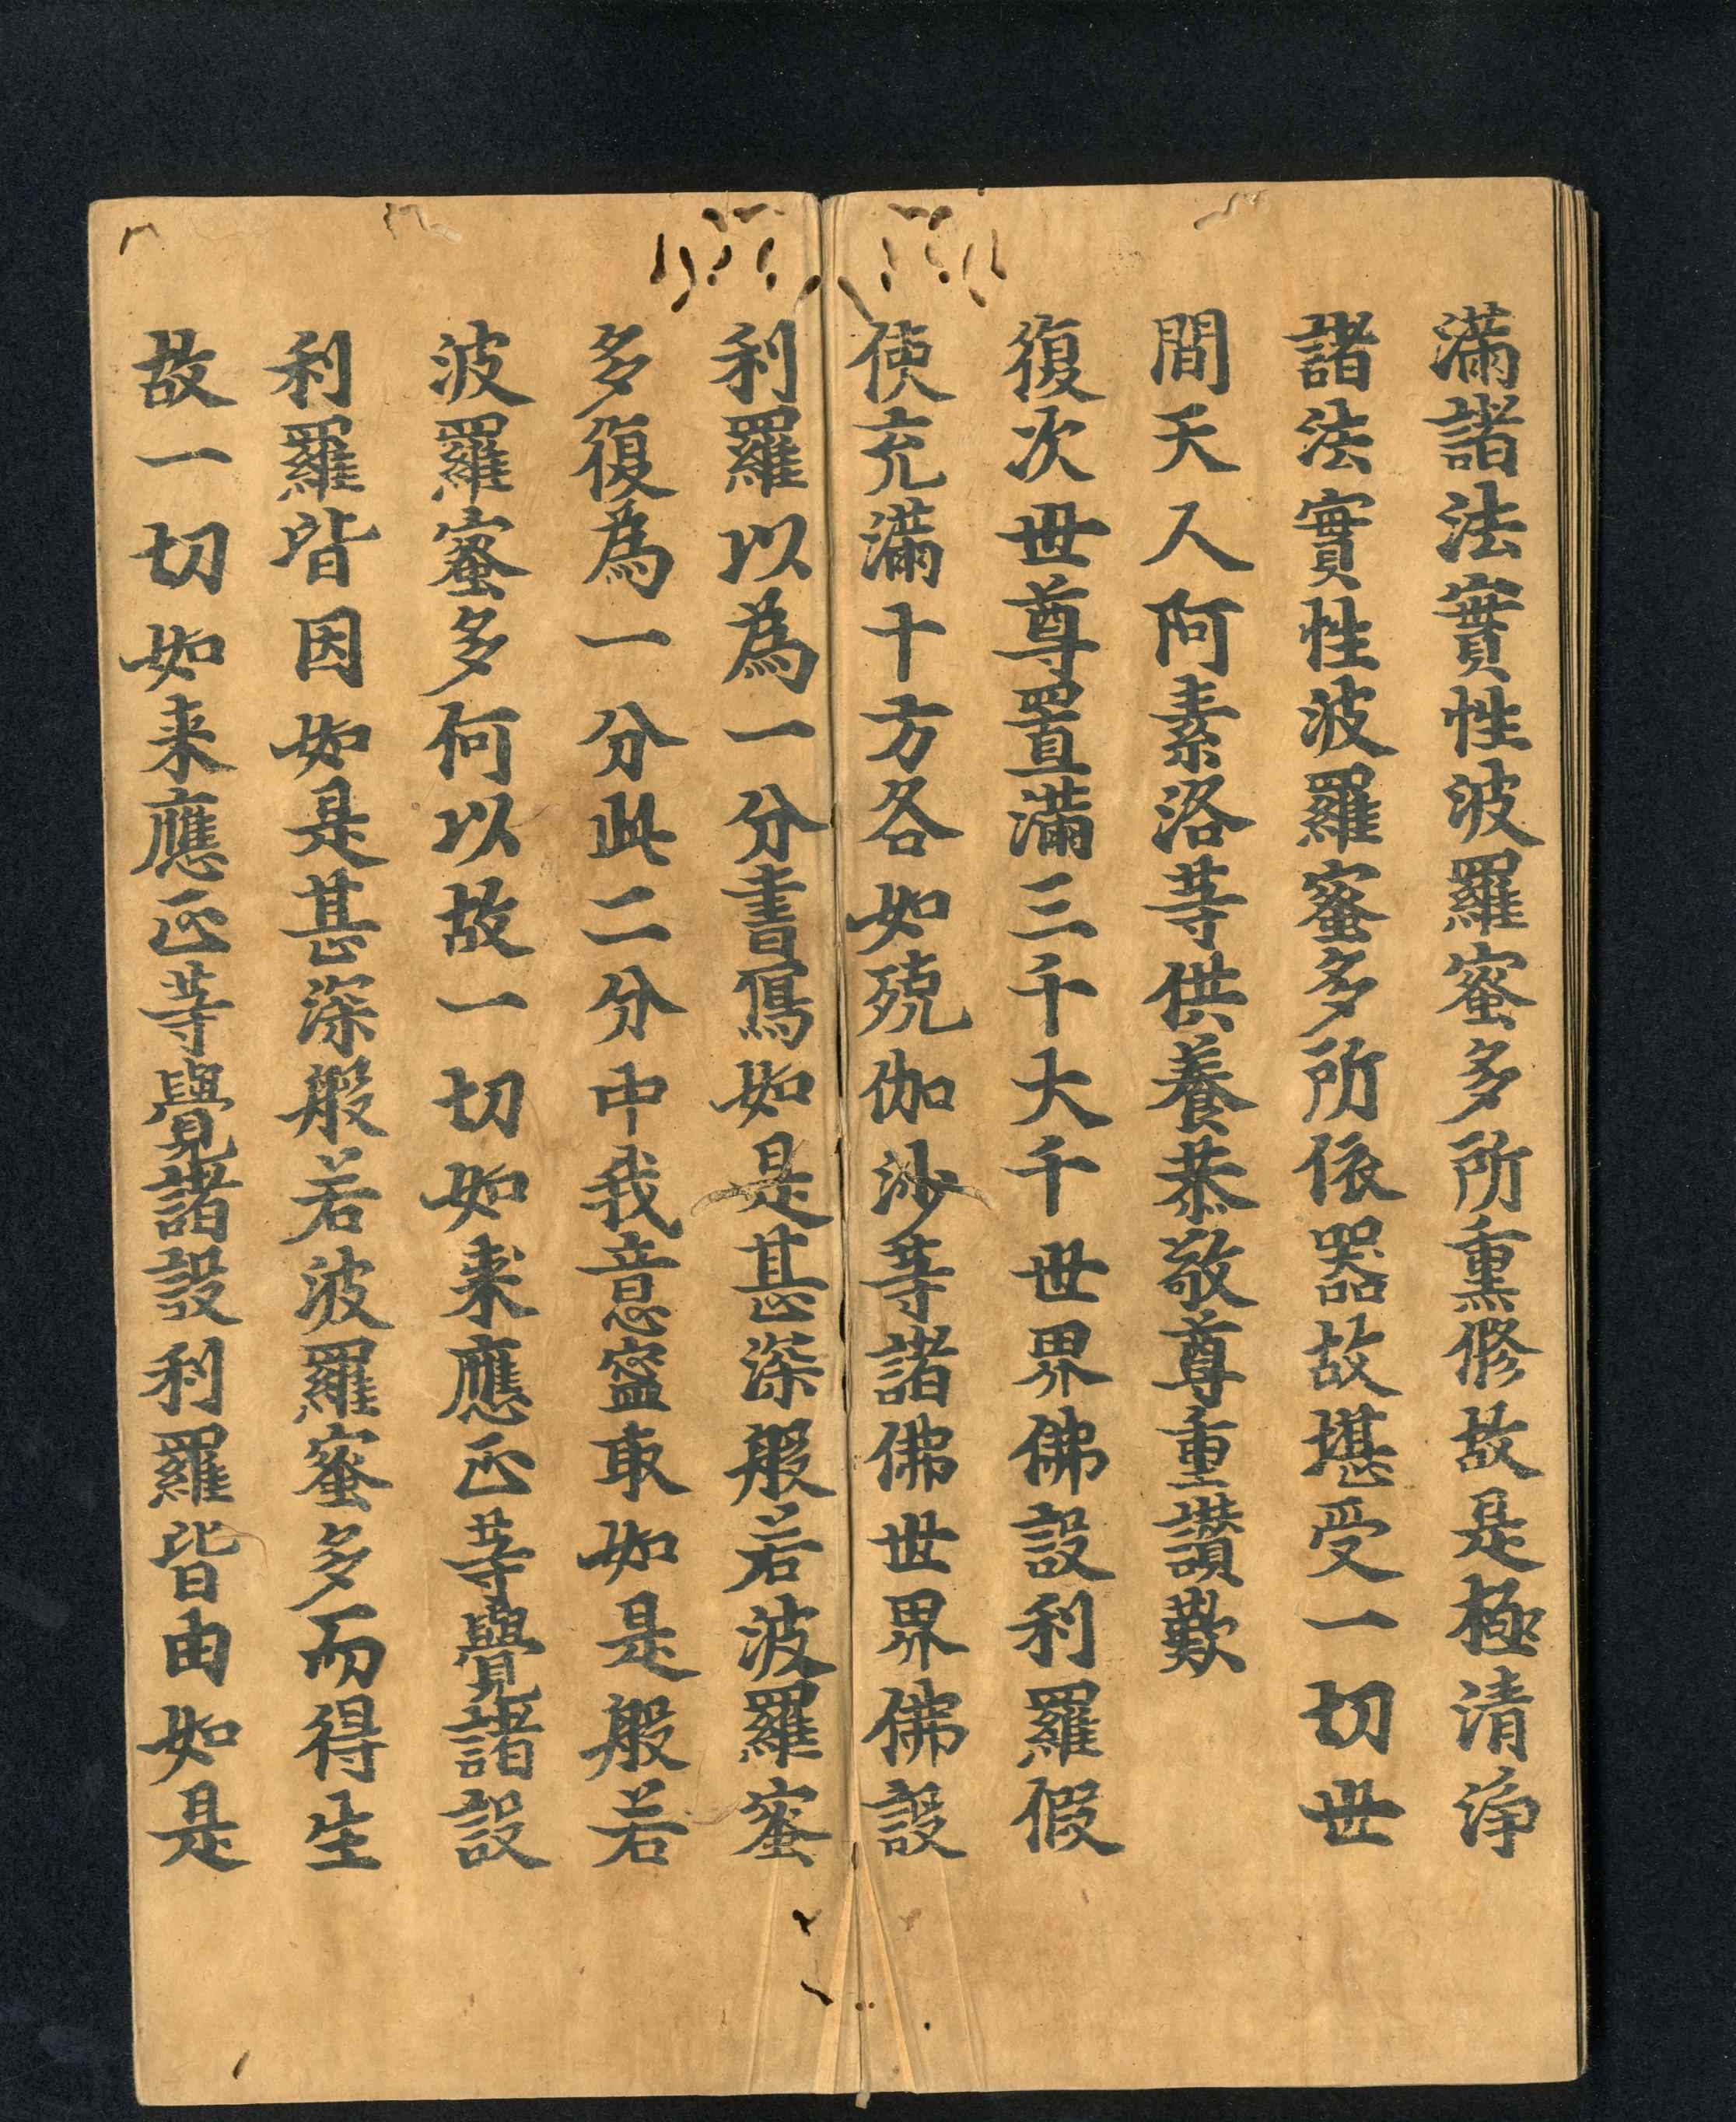 滿諸法實性波羅蜜多所熏修故是極清淨
諸法實性波羅蜜多所依器故堪受一切世
間天人阿素洛等供養恭敬尊重讚歎
復次世尊置滿三千大千世界佛設利羅假
使充滿十方各如殑伽沙等諸佛世界佛設
利羅以為一分書寫如是甚深般若波羅蜜
多復為一分此二分中我意寍取如是般若
波羅蜜多何以故一切如來應正等覺諸設
利羅皆因如是甚深般若波羅蜜多而得生
故一切如来應正等覺諸設利羅皆由如是